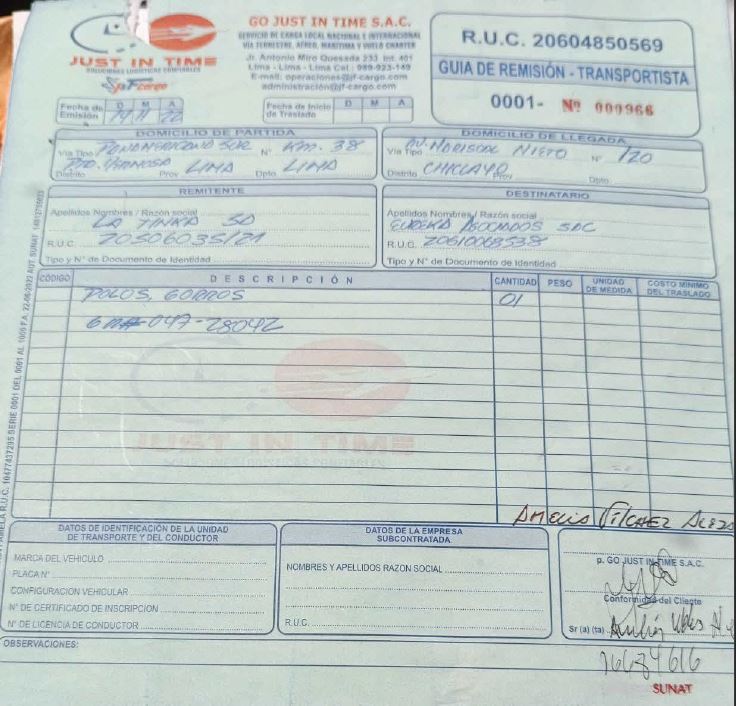 JUST IN TIME
SOLUCIONES LOGISTICAS CONFIABLES
cargo
GO JUST IN TIME S.A.C.
SERVICIO DE CARGA LOCAL NACIONAL E INTERNACIONAL
VIA TERRESTRE, AÉREO, MARITIMA Y VUELO CHARTER
Jr. Antonio Miro Quesada 233 Int. 401
Lima - Lima - Lima Cel.: 989-923-149
E-mail: operaciones@jf-cargo.com
administración@jf-cargo.com
R.U.C. 20604850569
GUIA DE REMISIÓN - TRANSPORTISTA
0001- Nº 000966
Fecha de Emisión D M A
11 22
Fecha de Inicio de Traslado D M A
DOMICILIO DE PARTIDA
Via Tipo PANAMERICANA SUR N° Km. 38
Distrito Prov LIMA Dpto LIMA
DOMICILIO DE LLEGADA
Via Tipo AV. MARISCAL NIETO N° 120
Distrito CHICLAYO Prov Dpto
REMITENTE
Apellidos Nombres / Razón social
LA TINKA SA
R.U.C. 20506035121
Tipo y N° de Documento de Identidad
DESTINATARIO
Apellidos Nombres / Razón social
EUREKA ASOCIADOS SAC
R.U.C. 20610068538
Tipo y N° de Documento de Identidad
CÓDIGO DESCRIPCIÓN CANTIDAD PESO UNIDAD DE MEDIDA COSTO MINIMO DEL TRASLADO
POLOS, GORROS 01
047-28042
JUST IN TIME
SOLUCIONES LOGISTICAS CONFIABLES
AMELIS VILCHEZ
DATOS DE IDENTIFICACIÓN DE LA UNIDAD
DE TRANSPORTE Y DEL CONDUCTOR
MARCA DEL VEHICULO
PLACA N°
CONFIGURACION VEHICULAR
N° DE CERTIFICADO DE INSCRIPCION
N° DE LICENCIA DE CONDUCTOR
DATOS DE LA EMPRESA
SUBCONTRATADA
NOMBRES Y APELLIDOS RAZON SOCIAL
R.U.C.
p. GO JUST IN TIME S.A.C.
Conformidad del Cliente
Sr (a) (ta)
OBSERVACIONES:
SUNAT